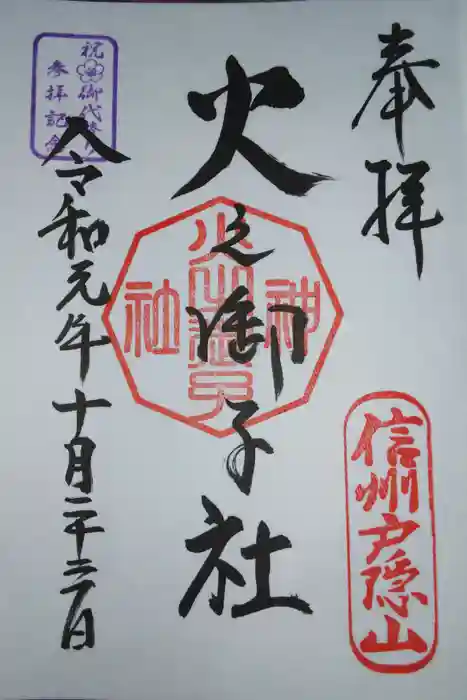 奉拝
信州戸隠山
火之御子社
火之御子
神社
令和元年十月二十三日
祝御代替り
参拝記念